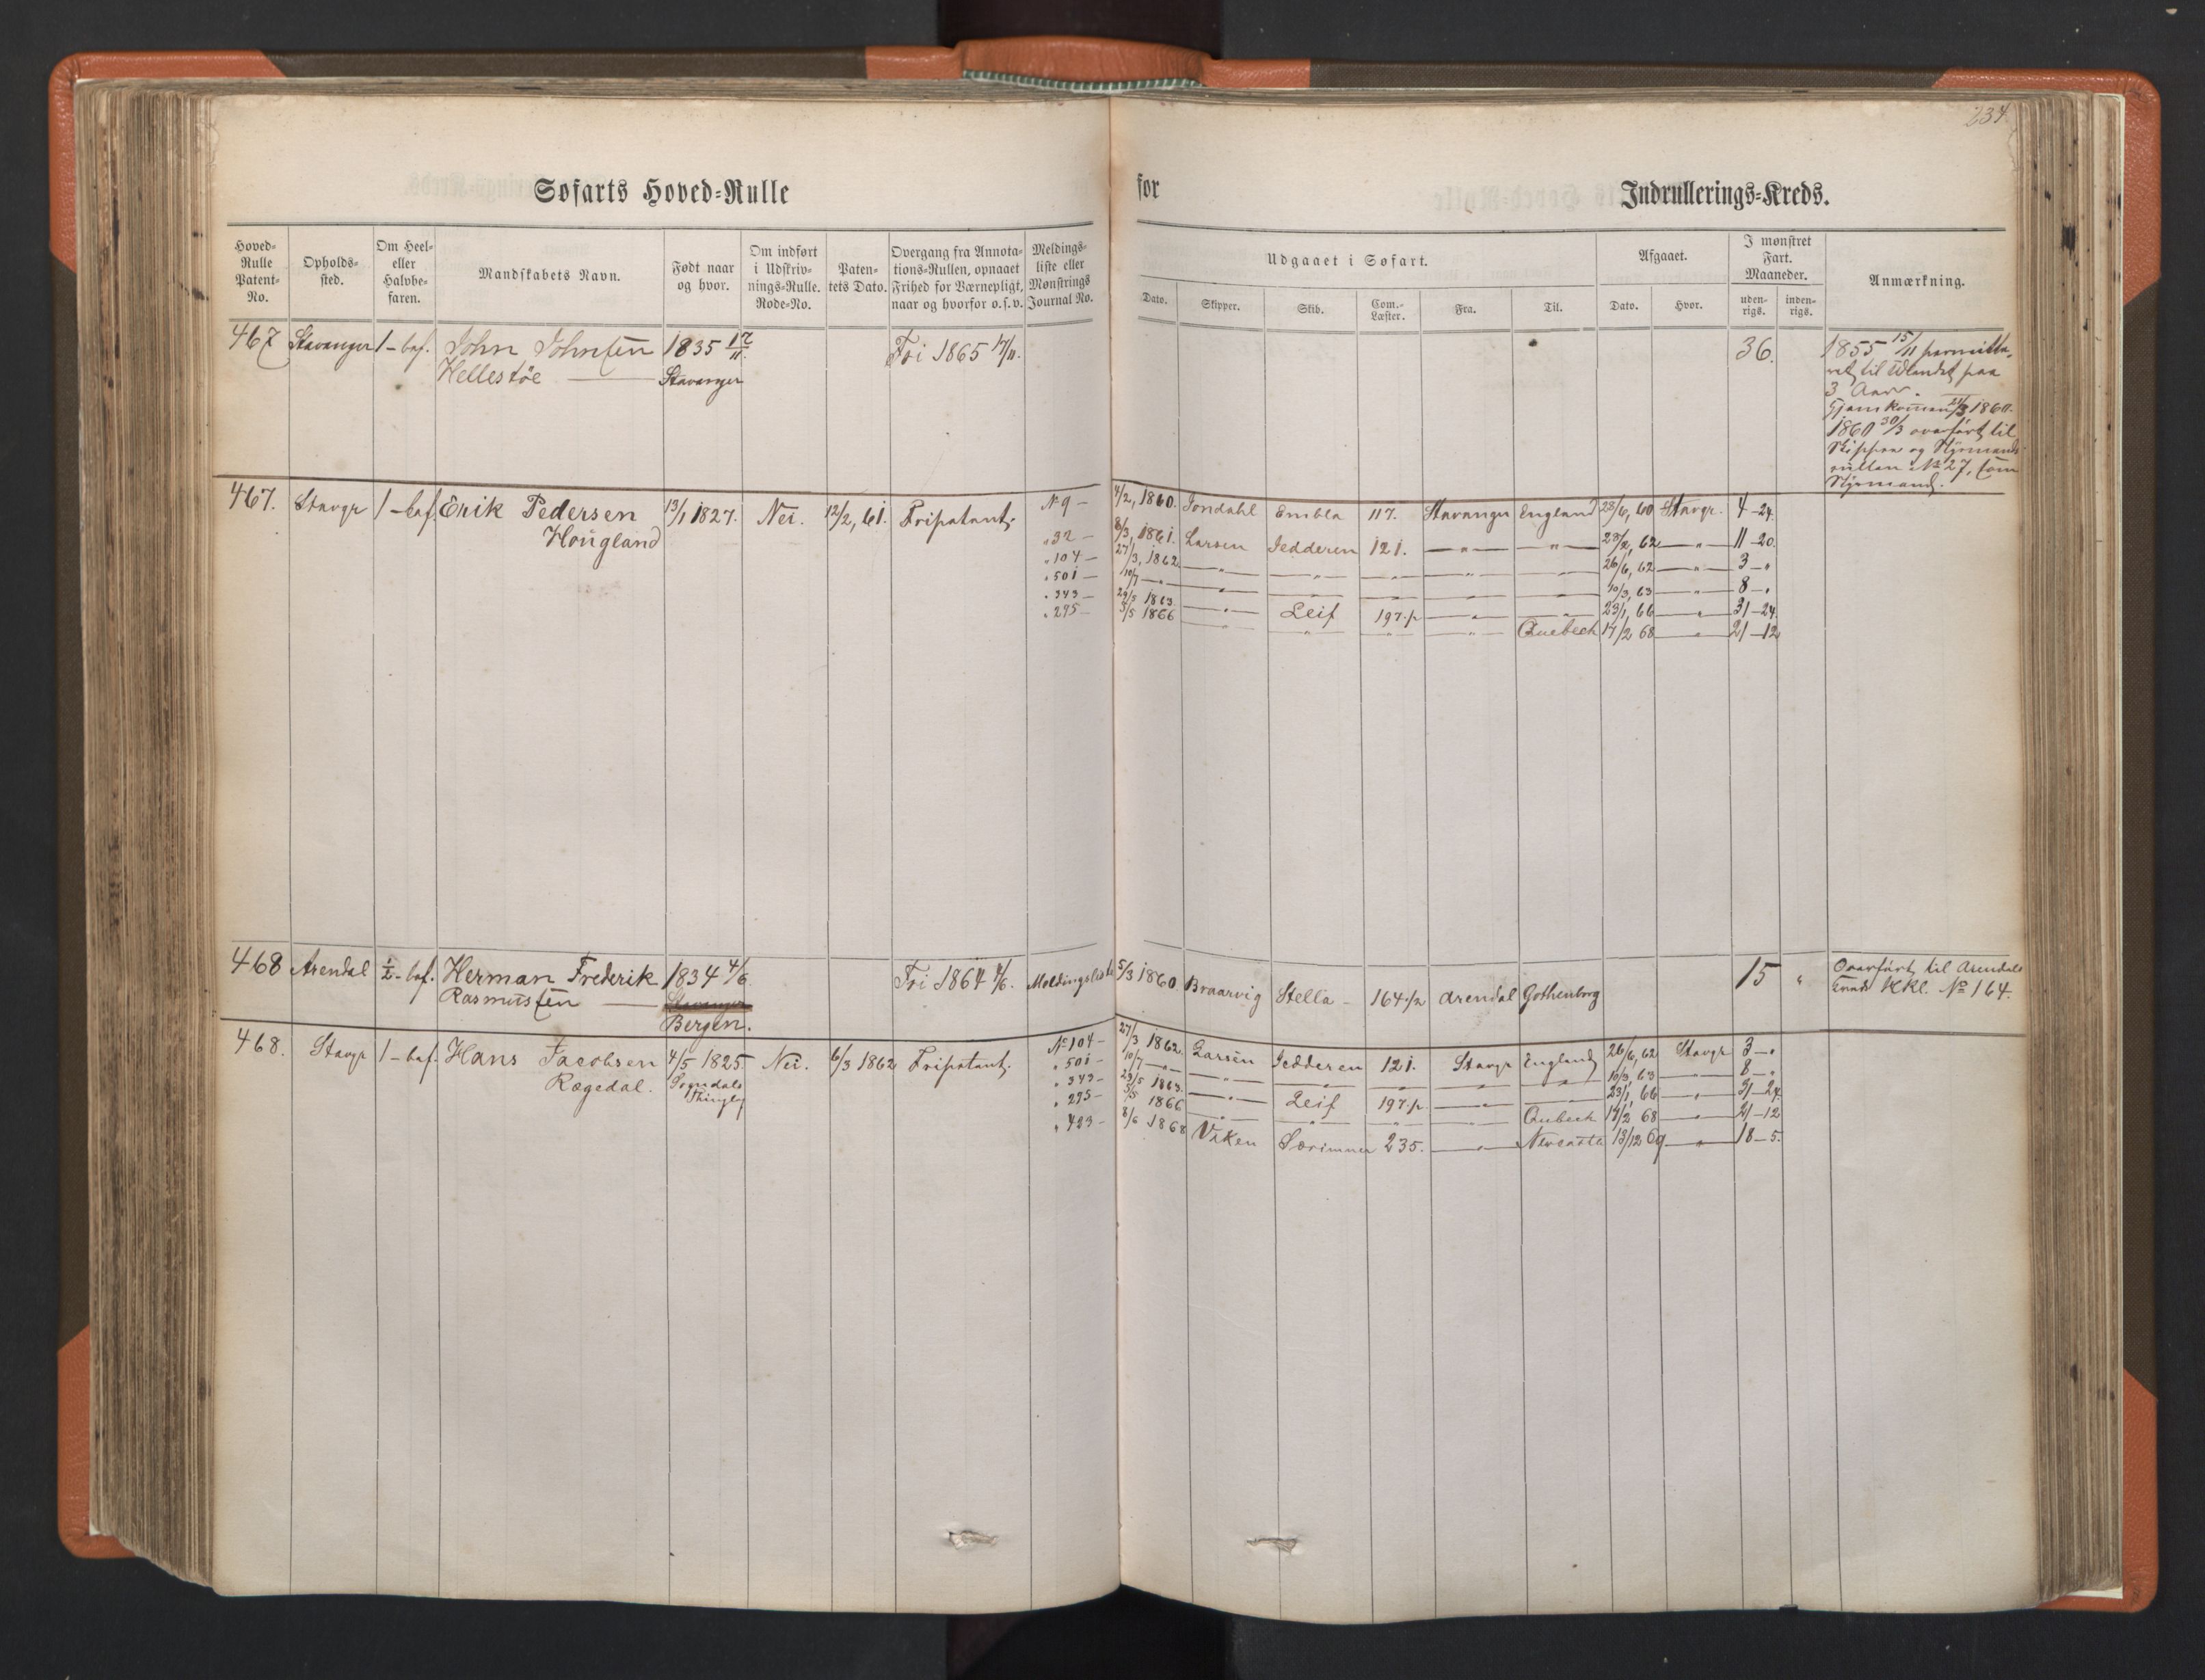 234
Søfarts Hoved-Rulle
for
Indrullerings-Kreds.
Hoved-Rulle Patent-No.
Opholds-sted.
Om Heel- eller Halvbe-faren.
Mandskabets Navn.
Født naar og hvor.
Om indført i Udskriv-nings-Rulle. Rode-No.
Paten-tets Dato.
Overgang fra Annota-tions-Rullen, opnaaet Frihed for Værnepligt, naar og hvorfor o.s.v.
Meldings-liste eller Mønstrings Journal No.
Udgaaet i Søfart.
Afgaaet.
I mønstret Fart. Maaneder.
Anmærkning.
Dato. Skipper. Skib. Com.-Læster. Fra. Til. Dato. Hvor. uden-rigs. inden-rigs.
467 Stavanger 1-bef. John Johnsen 1835 17/11 Fri 1865 17/11. 36. 1855 15/11
Hellestöe Stavanger til Udlandet paa
3 Aar.
Hjemkommen 1860.
1860 30/3 overført til
Skipper og Styrmands
rullen No 27, som
Styrmand.
467. Stavgr 1-bef. Erik Pedersen 13/1 1827. Nei. 12/2, 61. Fripatent. No 9 - 4/2, 1860. Jondahl Embla 117. Stavanger England 28/6, 60 Stavgr. 4-24.
Hougland " 32 - 8/3, 1861. Larsen Jedderen 121. — " — — " — 28/2, 62 — " — 11-20.
" 104 - 27/3, 1862. — " — — " — — " — — " — — " — 26/6, 62 — " — 3-"
" 501 - 10/7 — " — — " — — " — — " — — " — — " — 10/3, 63 — " — 8-"
" 343 - 29/5 1863. — " — Leif 197 1/2 — " — — " — 23/1, 66 — " — 31-24.
" 295 - 5/5 1866 — " — — " — — " — — " — Quebeck 17/2 68 — " — 21-12
468 Arendal 1/2-bef. Herman Frederik 1834 4/6 Fri 1864 4/6. Meldingsliste 5/3 1860. Braarvig Stella - 164 1/2 Arendal Gothenborg 15 " Overført til Arendals
Rasmussen Stavanger No 164.
Bergen.
468. Stavgr 1-bef. Hans Jacobsen 4/5 1825. Nei. 6/3 1862 Fripatent. No 104 - 27/3 1862. Larsen Jedderen 121. Stavgr England 26/6, 62 Stavgr 3-"
Rægedal. Sogndals " 501 - 10/7 — " — — " — — " — — " — — " — — " — 10/3, 63 — " — 8-"
Thinglag " 343 - 29/5 1863. — " — Leif 197 1/2 — " — — " — 23/1, 66 — " — 31-24.
" 295 - 5/5 1866 — " — — " — — " — — " — Qubeck 17/2 68 — " — 21-12
" 423 - 8/6 1868 Viken Særimner 235. — " — 13/12 69 — " — 18-5.